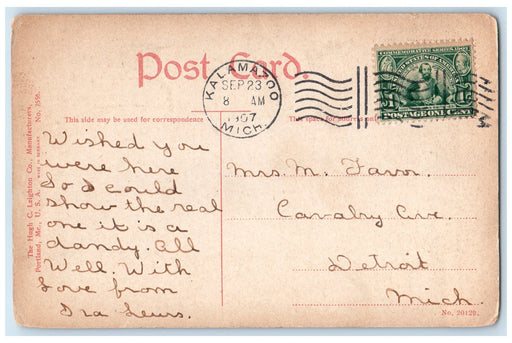 Post Card.
KALAMAZOO
SEP 23
8 AM
1907
MICH.
COMMEMORATIVE SERIES 1907
POSTAGE ONE CENT
This side may be used for correspondence
This space for address on
The Hugh C. Leighton Co., Manufacturers,
Portland, Me., U. S. A.
Wished you
were here
So I could
show the real
one it is a
dandy. All
Well. With
Love from
Ira Lewis.
Mrs. M. Favor.
Cavalry Ave.
Detroit
Mich.
No. 20129.